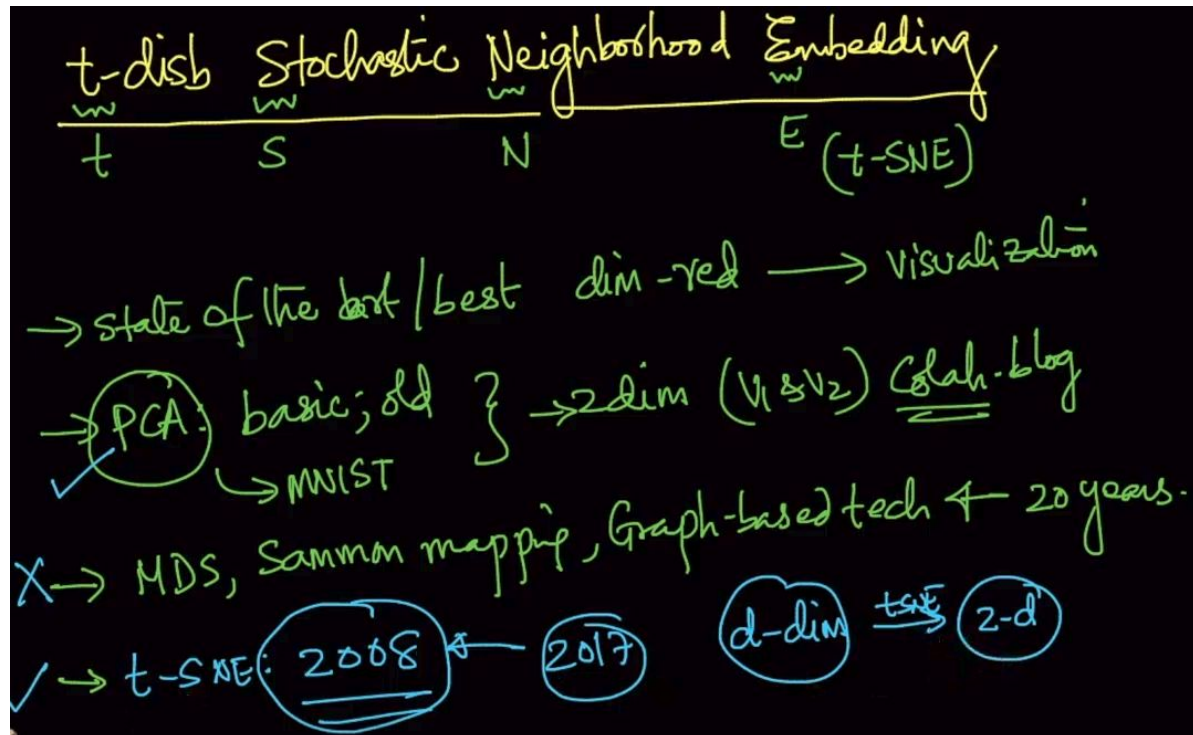 t-distb Stochastic Neighborhood Embedding
t S N E (t-SNE)
→ state of the art/best dim-red → visualization
→ PCA: basic; old } → 2dim (V1 & V2) Colah-blog
↳ MNIST
X → MDS, Sammon mapping, Graph-based tech ← 20 years.
✓ → t-SNE: 2008 ← 2017 d-dim tSNE → 2-d